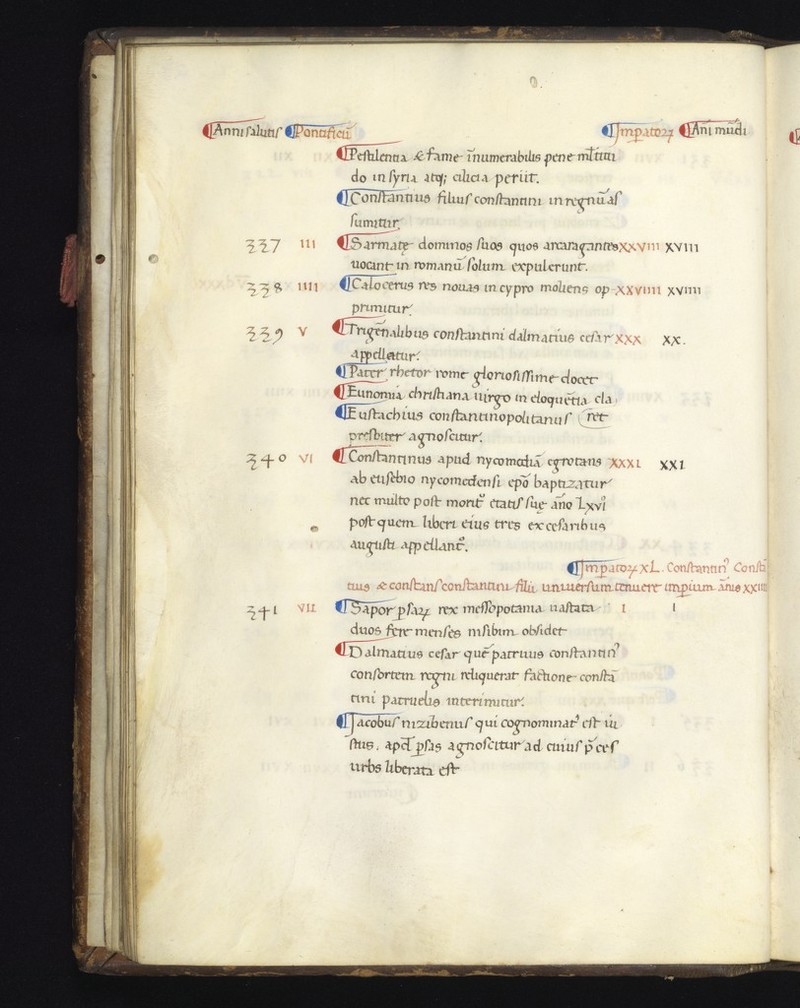 ¶Anni salutis ¶Pontificū ¶Impatoꝝ ¶Ani mūdi
¶Pestilentia & fame īnumerabilis pene ml̄titu
do in syria atq; cilicia periit.
¶Constantius filius constantini in regnū as
sumitur.
337 III ¶Sarmatę dominos suos quos arcaragantes XXVIII XVIII
uocant in romanū solum expulerunt.
338 IIII ¶Calocerus res nouas in cypro moliens op XXVIIII XVIIII
primitur.
339 V ¶Trigēnalibus constantini dalmatius cesar XXX XX.
appellatur.
¶Pater rhetor rome gloriosissime docet
¶Eunomia christiana uirgo in eloquētia cla
¶Eustachius constantinopolitanus ret
presbiter agnoscitur.
340 VI ¶Constantinus apud nycomediā egrotans XXXI XXI
ab eusebio nycomedensi epō baptizatur
nec multo post morit᷒ etatis sue año Lxvi
post quem liberi eius tres ex cesaribus
augusti appellant᷒.
¶Impatoꝝ XL. Constantin᷒ Constā
tius & constans constantini filii uniuersum tenuere impium ānis XXIIII
341 VII ¶Sapor ꝑsaꝝ rex mesopotania uastata I I
duos fere menses nisibim obsidet
¶Dalmatius cesar quē patruus constantin᷒
consortem regni reliquerat factione constā
tini patruelis interimitur.
¶Jacobus nizibenus qui cognominat᷒ est iu
stus. apd̄ ꝑsas agnoscitur ad cuius p̄ces
urbs liberata est